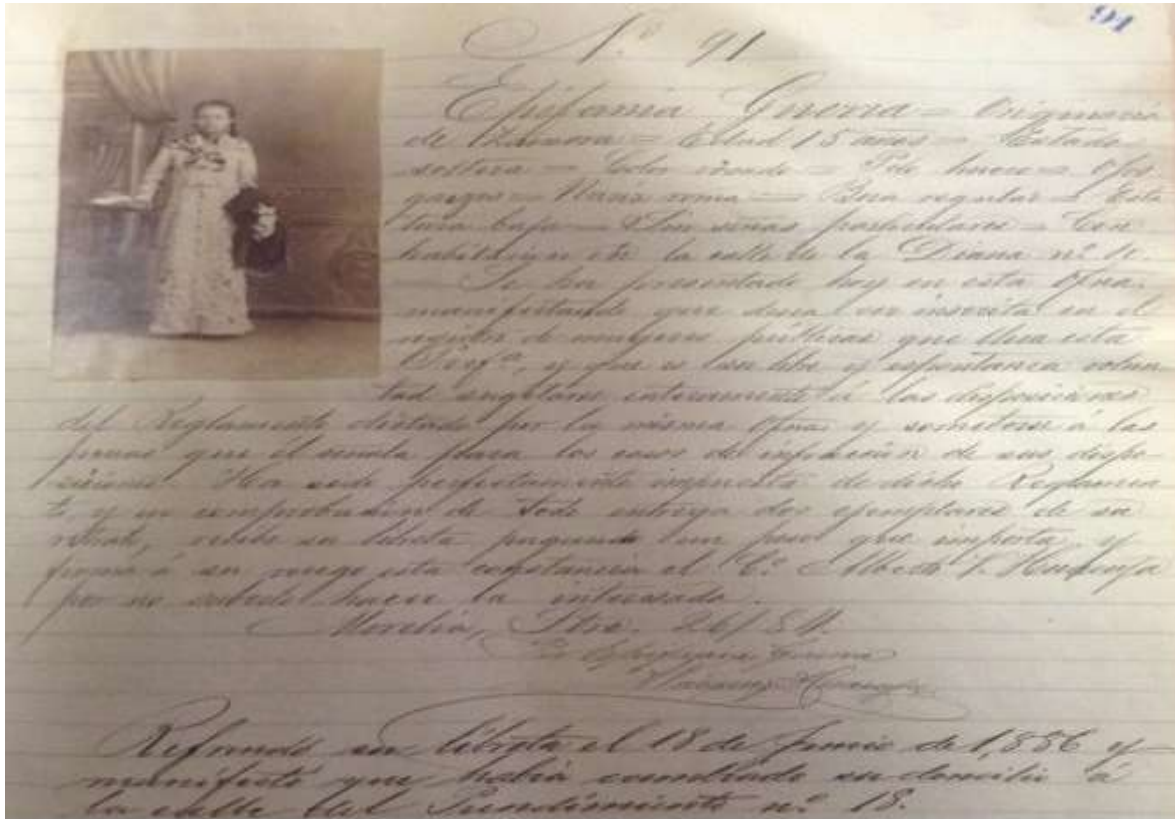 91
N.º 91
Epifania Guerra = Originaria
de Zamora = Edad 15 años = Estado
soltera = Color = Pelo = Ojos
garzos = Nariz roma = Boca regular = Esta
tura baja = Son señas particulares = Con
habitacion en la calle de la Diana nº
Se ha presentado hoy en esta Ofna.
manifestando que desea ser inscrita en el
registro de mugeres públicas que lleva esta
Prefª, y que es su libre y espontanea volun
tad sugetarse enteramente á las disposiciones
del Reglamento dictado por la misma Ofna. y someterse á las
penas que el señala para los casos de infraccion de sus dispo-
siciones. Ha sido perfectamente impuesta de dicho Reglamen
to y en comprobacion de todo entrega dos ejemplares de su
retrato, recibe su libreta pagando un peso que importa y
firma á su ruego esta constancia el C. Alberto
por no saberlo hacer la interesada.
Morelia, 26/84.
Por Epifania Guerra
Refrendó su libreta el 18 de Junio de 1,886 y
manifestó que habia cambiado su domicilio á
la calle del nº 18.